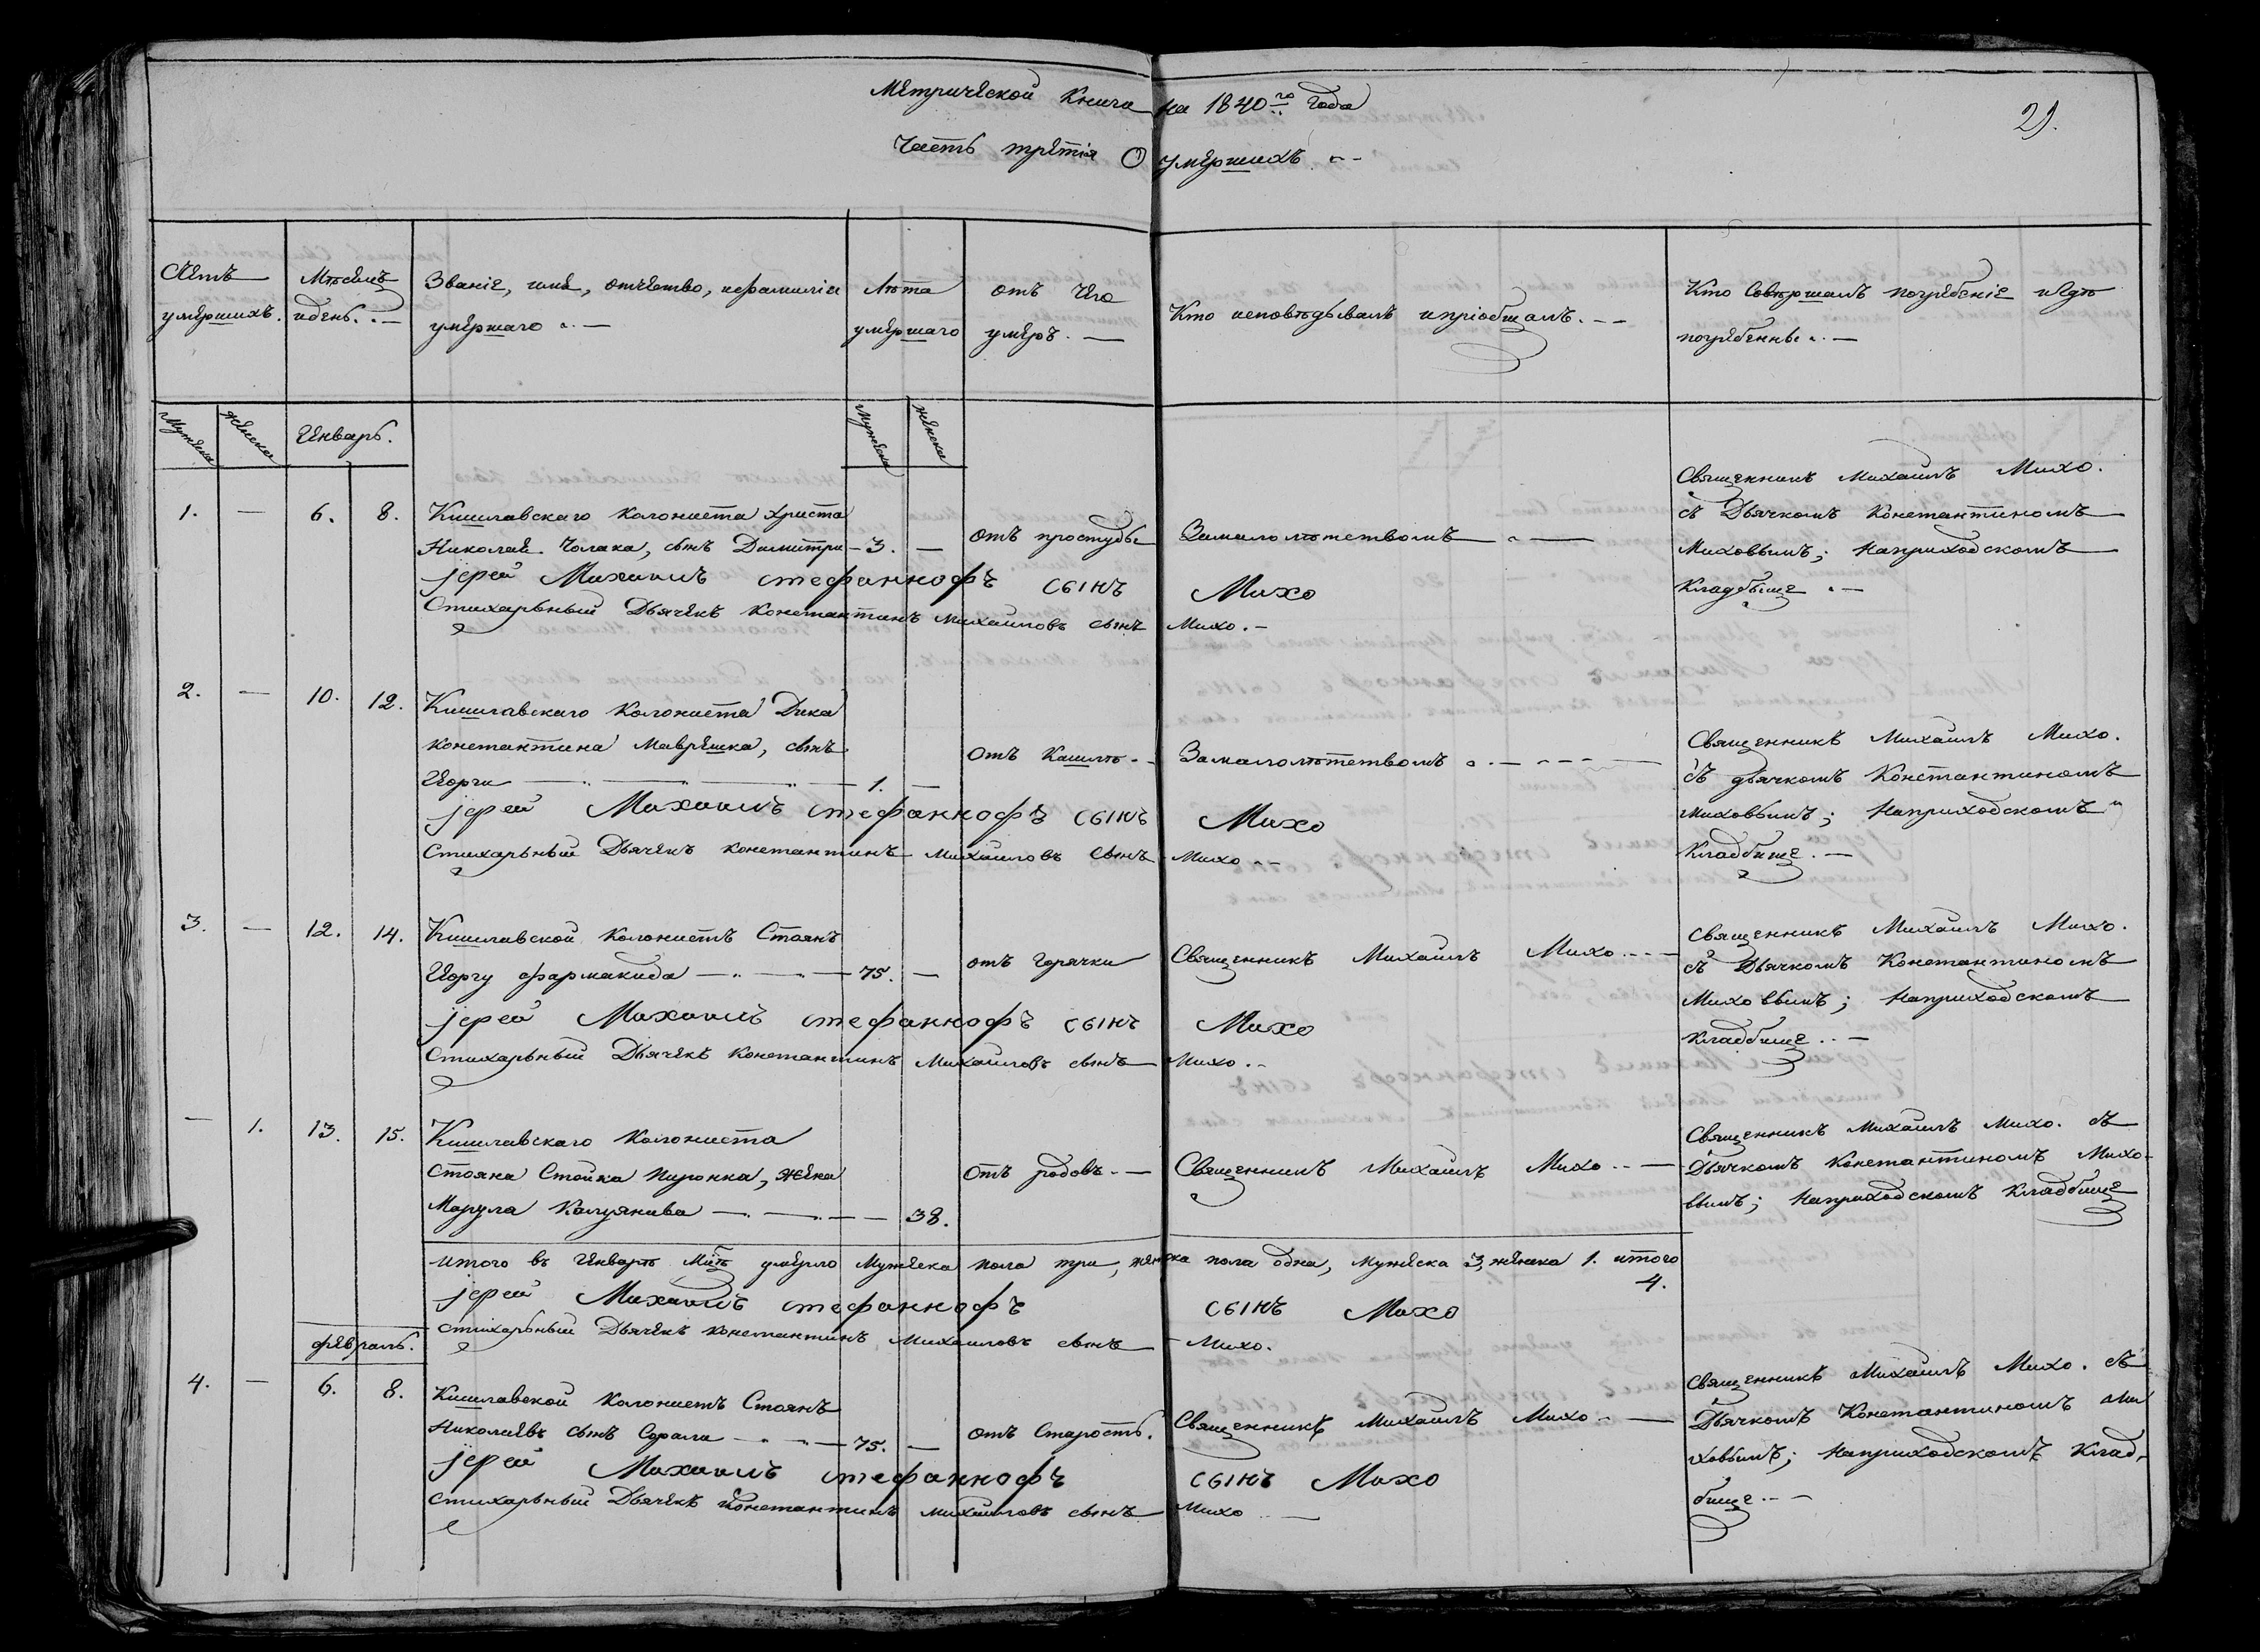 Метрической Книги на 1840го Года
29.
Часть третія О умершихъ
Счетъ умершихъ.
Мѣсяцъ идень.
Званіе, имя, отчество, ифамилія умершаго
Лѣта умершаго
отъ чего умеръ.
Кто исповѣдывалъ ипріобщалъ.
Кто Совершалъ погребеніе игдѣ погребенны
Мужеска
женска
Генварь.
Мужеска
женска
1. — 6. 8. Кишлавскаго колониста Христа
Николая Чолака, сынъ Димитри — 3. —
отъ простуды
Замалолѣтствомъ
Священникъ Михаилъ Михо.
съ Дьячкомъ Константиномъ
Миховымъ; Наприходскомъ
Кладбище
јерей Михаилъ стефанкофъ сынъ Михо
Стихарьный Дьячекъ Константинъ Михаиловъ сынъ Михо.
2. — 10. 12. Кишлавскаго Колониста Дика
константина Маврешка, сынъ
Георги — 1. —
отъ Кашля
Замалолѣтствомъ
Священникъ Михаилъ Михо.
съ дьячкомъ Константиномъ
миховымъ; Наприходскомъ
Кладбище.
јерей Михаилъ стефанкофъ сынъ Михо
Стихарьный Дьячекъ константинъ Михаиловъ сынъ Михо
3. — 12. 14. Кишлавской колонистъ Стоянъ
Георгу фармакида — 75. —
отъ Горячки
Священникъ Михаилъ Михо
Священникъ Михаилъ Михо.
съ Дьячкомъ Константиномъ
Миховымъ; Наприходскомъ
кладбище
јерей Михаилъ стефанкофъ сынъ Михо
Стихарьный Дьячекъ константинъ Михаиловъ сынъ Михо.
— 1. 13. 15. Кишлавскаго колониста
Стояна Стойка Пиронка, жена
Марула Калуянива — 38.
отъ родовъ
Священникъ Михаилъ Михо
Священникъ Михаилъ Михо. съ
Дьячкомъ Константиномъ Михо-
вымъ; Наприходскомъ Кладбище
итого въ Генварѣ Мцѣ умерло Мужеска пола три, женска пола одна, мужеска 3, женска 1. итого
4.
јерей Михаилъ стефанкофъ сынъ Михо
стихарьный Дьячекъ константинъ Михаиловъ сынъ Михо.
февраль.
4. — 6. 8. Кишлавской колонистъ Стоянъ
Николаевъ сынъ Сорали — 75. —
отъ Старость.
Священникъ Михаилъ Михо
Священникъ Михаилъ Михо. съ
Дьячкомъ Константиномъ Ми
ховымъ; Наприходскомъ Клад-
бище
јерей Михаилъ стефанкофъ сынъ Михо
Стихарьный Дьячекъ Константинъ михаиловъ сынъ Михо